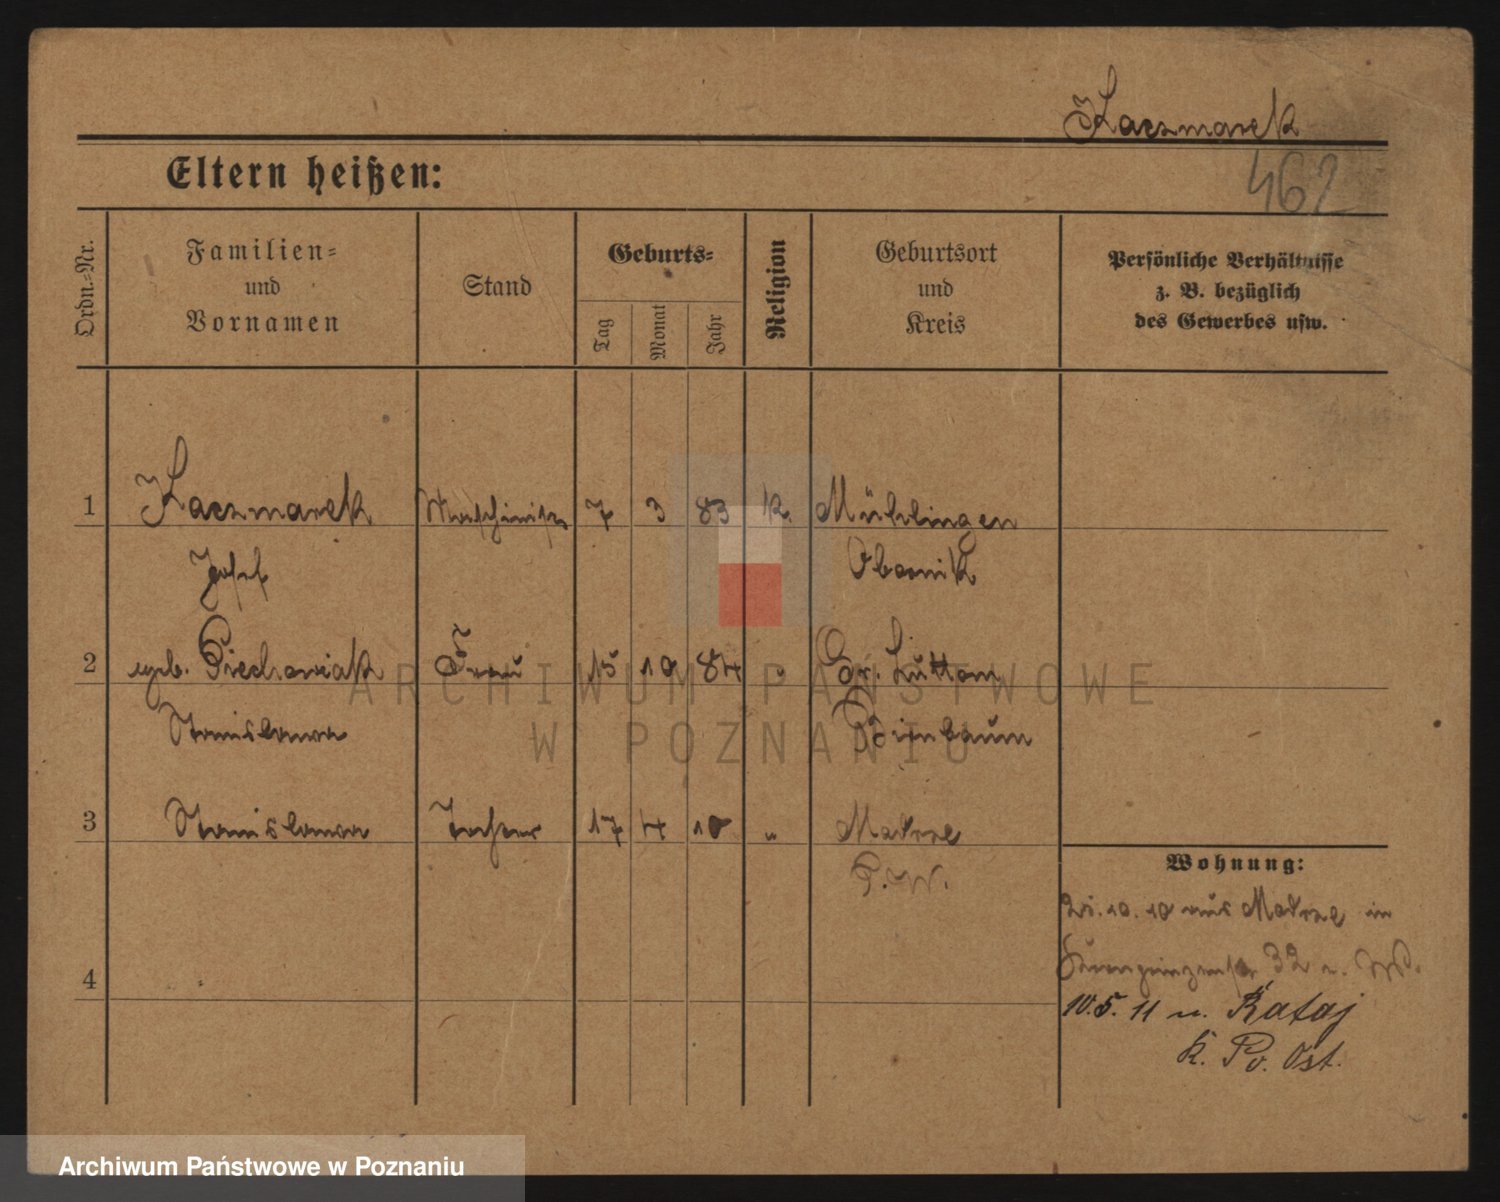 Kaczmarek
Eltern heißen:
462
Ordn.-Nr.
Familien-
und
Vornamen
Stand
Geburts-
Tag
Monat
Jahr
Religion
Geburtsort
und
Kreis
Persönliche Verhältnisse
z. B. bezüglich
des Gewerbes usw.
1 Kaczmarek Maschinist 7 3 83 k. Mühlingen
Josef Obornik
2 geb. Piechowiak Frau 15 10 84 " Gr. Lutton
Stanislawa Birnbaum
3 Stanislawa Tochter 17 4 10 " Modrze
P. W.
Wohnung:
10. 10 aus Modrze in
Kronprinzenstr 32 n. W.
4
10. 5. 11 n. Rataj
K. Po. Ost.
ARCHIWUM PAŃSTWOWE
W POZNANIU
Archiwum Państwowe w Poznaniu